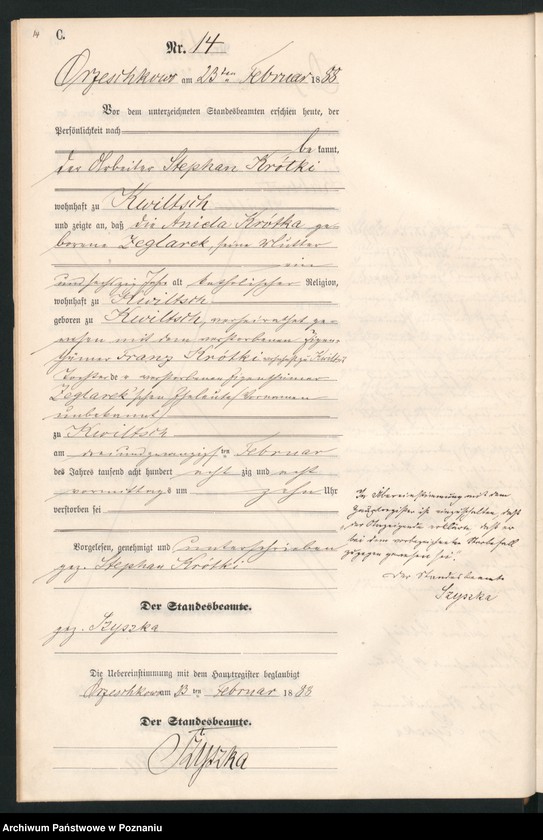 14
C.
Nr. 14
Orzeschkowo am 23ten Februar 1888
Vor dem unterzeichneten Standesbeamten erschien heute, der
Persönlichkeit nach
be kannt,
der Arbeiter Stephan Krótki
wohnhaft zu Kwiltsch
und zeigte an, daß die Aniela Krótka ge-
borene Zeglarek, seine Mutter
ein
und sechzig Jahr alt katholischer Religion,
wohnhaft zu Kwiltsch
geboren zu Kwiltsch, verheirathet ge-
wesen mit dem verstorbenen Eigen-
thümer Franz Krótki wohnhaft zu Kwiltsch
Tochter der verstorbenen Eigenthümer
Zeglarek'schen Eheleute Vornamen
unbekannt
zu Kwiltsch
am dreiundzwanzigsten Februar
des Jahres tausend acht hundert acht zig und acht
vormittags um zehn Uhr
verstorben sei
Vorgelesen, genehmigt und unterschrieben
gez. Stephan Krótki
Der Standesbeamte.
gez. Szyszka
Die Uebereinstimmung mit dem Hauptregister beglaubigt
Orzeschkowo am 23ten Februar 1888
Der Standesbeamte.
Szyszka
In Übereinstimmung mit dem
Hauptregister ist einzuschalten, daß
der Anzeigende erklärte, daß er
bei dem vorbezeichneten Sterbefall
zugegen gewesen sei.
Der Standesbeamte
Szyszka
Archiwum Państwowe w Poznaniu